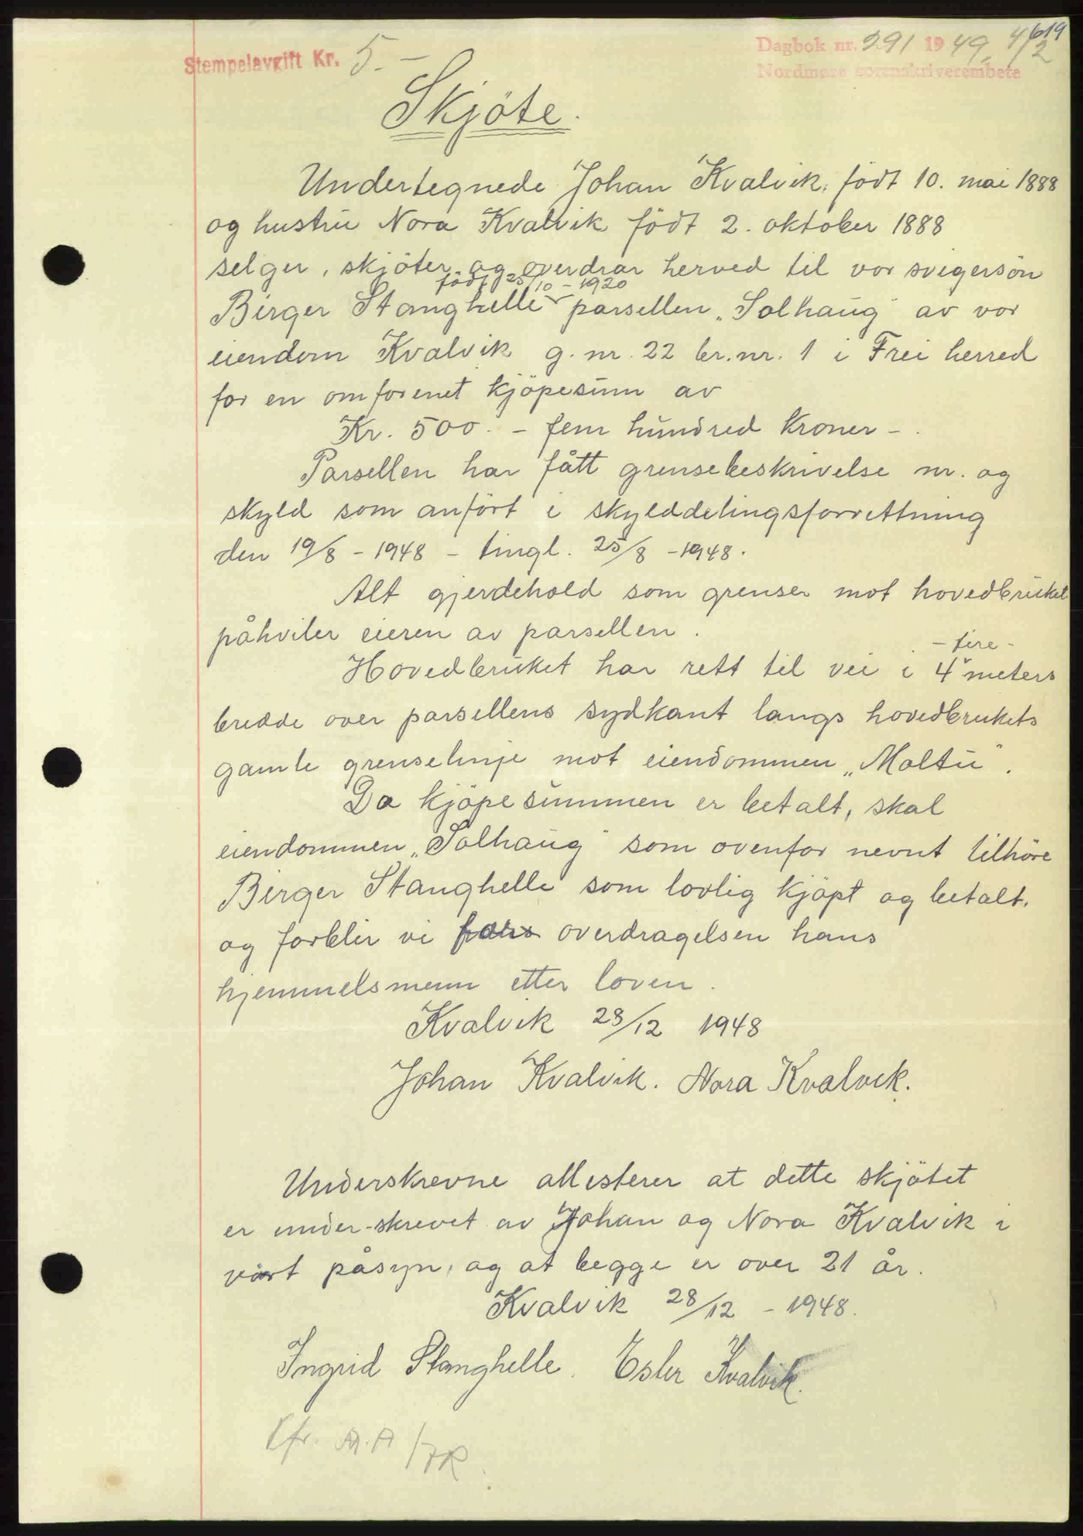 619
Stempelavgift Kr. 5.-
Dagbok nr. 391 1949 4/2
Nordmøre sorenskriverembete
Skjöte.
Undertegnede Johan Kvalvik, födt 10. mai 1888
og hustru Nora Kvalvik födt 2. oktober 1888
selger, skjöter og overdrar herved til vor svigersön
födt 25/10 - 1920
Birger Stanghelle parsellen „Solhaug" av vor
eiendom Kvalvik g. nr. 22 br. nr. 1 i Frei herred
for en omforenet kjöpesum av
Kr. 500. - fem hundred kroner -.
Parsellen har fått grensebeskrivelse nr. og
skyld som anfört i skylddelingsforrettning
den 19/8 - 1948 - tingl. 25/8 - 1948.
Alt gjerdehold som grenser mot hovedbruket
påhviler eieren av parsellen.
- fire -
Hovedbruket har rett til vei i 4 meters
bredde over parsellens sydkant langs hovedbrukets
gamle grenselinje mot eiendommen „Moltu".
Da kjöpesummen er betalt, skal
eiendommen „Solhaug" som ovenfor nevnt tilhöre
Birger Stanghelle som lovlig kjöpt og betalt.
og forblir vi overdragelsen hans
hjemmelsmenn etter loven.
Kvalvik 28/12 1948
Johan Kvalvik. Nora Kvalvik.
Underskrevne attesterer at dette skjötet
er under-skrevet av Johan og Nora Kvalvik i
vårt påsyn, og at begge er over 21 år.
Kvalvik 28/12 - 1948.
Ingrid Stanghelle. Esler Kvalvik.